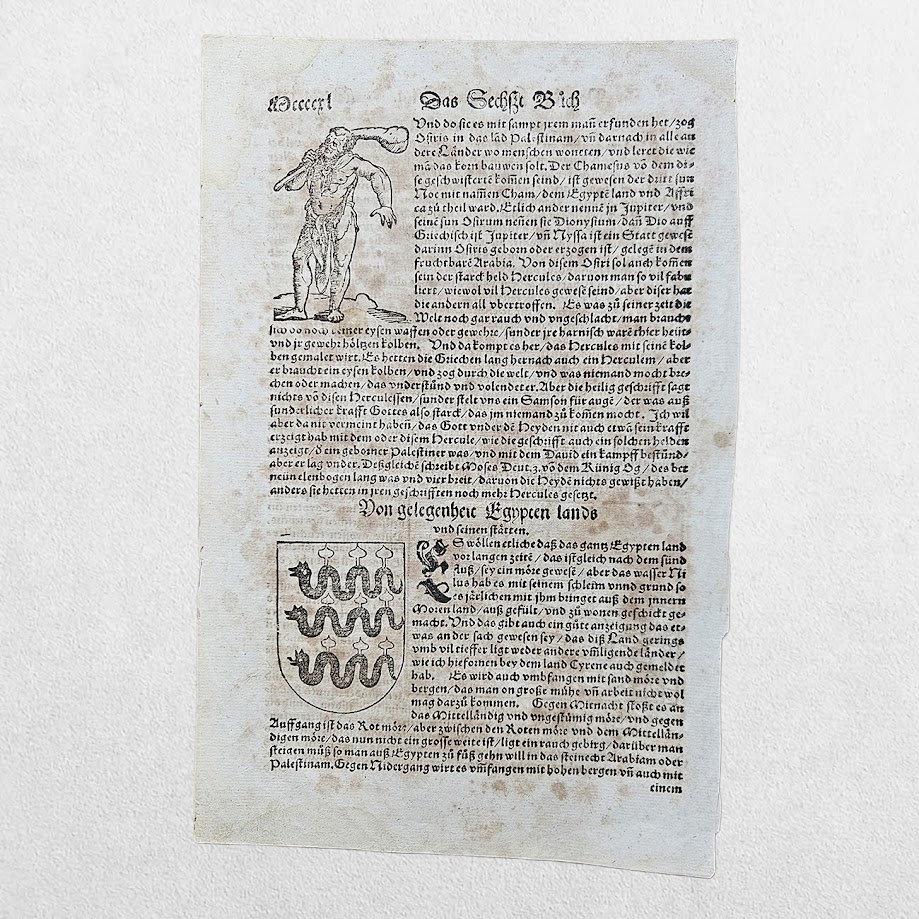 Mccccxl
Das Sechst Bůch
Vnd do sie es mit sampt jrem man erfunden het / zog
Osiris in das läd Palestinam / vñ darnach in alle an
dere Länder wo menschen woneten / vnd leret die wie
mā das korn bauwen solt. Der Chamesus vō dem di-
se geschwisterte kommen seind / ist gewesen der dritt sun
Noe mit nammen Cham / dem Egyptē land vnd Affri
ca zů theil ward. Etlich ander nennē jn Jupiter / vnd
seinē sun Osirum neñen sie Dionysium / dañ Dio auff
Griechisch ist Jupiter / vñ Nyssa ist ein Statt gewesē
darinn Osiris geborn oder erzogen ist / gelegē in dem
fruchtbarē Arabia. Von disem Osiri sol auch kommen
sein der starck held Hercules / daruon man so vil fabu
liert / wiewol vil Hercules gewesē seind / aber diser hat
die andern all vbertroffen. Es was zů seiner zeit die
Welt noch gar rauch vnd vngeschlacht / man braucht
do noch keinzer eysen waffen oder gewehre / sunder jre harnisch warē thier heüt
vnd jr gewehr höltzen kolben. Vnd da kompt es her / das Hercules mit seinē kol-
ben gemalet wirt. Es hetten die Griechen lang hernach auch ein Herculem / aber
er braucht ein eysen kolben / vnd zog durch die welt / vnd was niemand mocht bre-
chen oder machen / das vnderstünd vnd volendet er. Aber die heilig geschrifft sagt
nichts vō disen Herculessen / sunder stelt vns ein Samson für augē / der was auß
sunderlicher krafft Gottes also starck / das jm niemand zů kommen mocht. Ich wil
aber da nit vermeint haben / das Gott vnder dē Heyden nit auch etwā sein krafft
erzeigt hab mit dem oder disem Hercule / wie die geschrifft auch ein solchen helden
anzeigt / d ein geborner Palestiner was / vnd mit dem David ein kampff bestünd /
aber er lag vnder. Deßgleichē schreibt Moses Deut. 3. vō dem Künig Og / des bet
neun elenbogen lang was vnd vier breit / daruon die Heydē nichts gewißt haben /
anders sie hetten in jren geschrifften noch mehr Hercules gesetzt.
Von gelegenheit Egypten lands
vnd seinen stätten.
ES wöllen etliche daß das gantz Egypten land
vor langen zeitē / das ist gleich nach dem sünd
fluß / sey ein möre gewesē / aber das wasser Ni
lus hab es mit seinem schleim vnnd grund so
es järlichen mit jhm bringet auß dem jnnern
Morenland / auß gefült / vnd zů wonen geschickt ge-
macht. Vnd das gibt auch ein gůte anzeigung das et-
was an der sach gewesen sey / das diß Land gerings
vmb vil tieffer ligt weder andere vmligende länder /
wie ich hiefoinen bey dem land Cyrene auch gemeldet
hab. Es wird auch vmbfangen mit sand möre vnd
bergen / das man on große mühe vñ arbeit nicht wol
mag darzů kommen. Gegen Mitnacht stoßt es an
das Mittelländig vnd vngestümig möre / vnd gegen
Auffgang ist das Rot möre / aber zwischen den Roten möre vnd dem Mittellän-
digen möre / das nun nicht ein grosse weite ist / ligt ein rauch gebirg / darüber man
steigen můß so man auß Egypten zů fůß gehn will in das steinecht Arabiam oder
Palestinam. Gegen Nidergang wirt es vmfangen mit hohen bergen vñ auch mit
einem